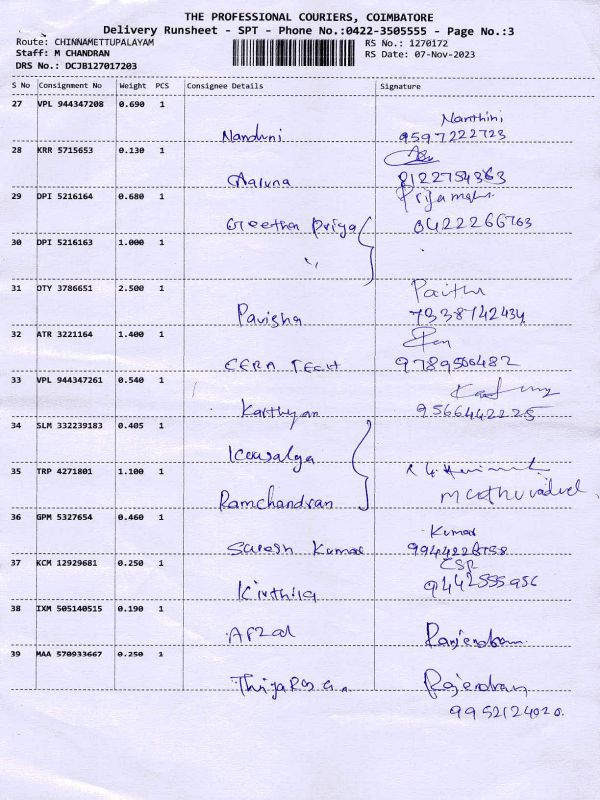 THE PROFESSIONAL COURIERS, COIMBATORE
Delivery Runsheet - SPT - Phone No.:0422-3505555 - Page No.:3
Route: CHINNAMETTUPALAYAM
RS No.: 1270172
Staff: M CHANDRAN
RS Date: 07-Nov-2023
DRS No.: DCJB127017203
S No Consignment No Weight PCS Consignee Details Signature
27 VPL 944347208 0.690 1
Nanthini
Nandhini 9597222723
28 KRR 5715653 0.130 1
Aaruna 8122754363
29 DPI 5216164 0.680 1
Geetha Priya 0422266763
30 DPI 5216163 1.000 1
〃
31 OTY 3786651 2.500 1
Pavisha
32 ATR 3221164 1.400 1
CERA TECH 9789566482
33 VPL 944347261 0.540 1
Karthyan 9566442225
34 SLM 332239183 0.405 1
Kowsalya
35 TRP 4271801 1.100 1
Ramchandran
36 GPM 5327654 0.460 1
Kumar
Suresh Kumar
37 KCM 12929681 0.250 1
Kiruthika 9442555956
38 IXM 505140515 0.190 1
Afzal Rajendran
39 MAA 570933667 0.250 1
Rajendran
9952124020.